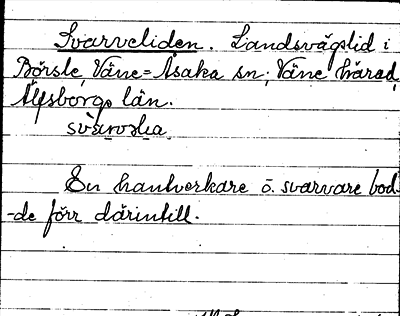 Svarveliden. Landsvägslid i
Börsle, Väne-Åsaka sn, Väne härad,
Älvsborgs län.
En hantverkare o. svarvare bod-
-de förr därintill.